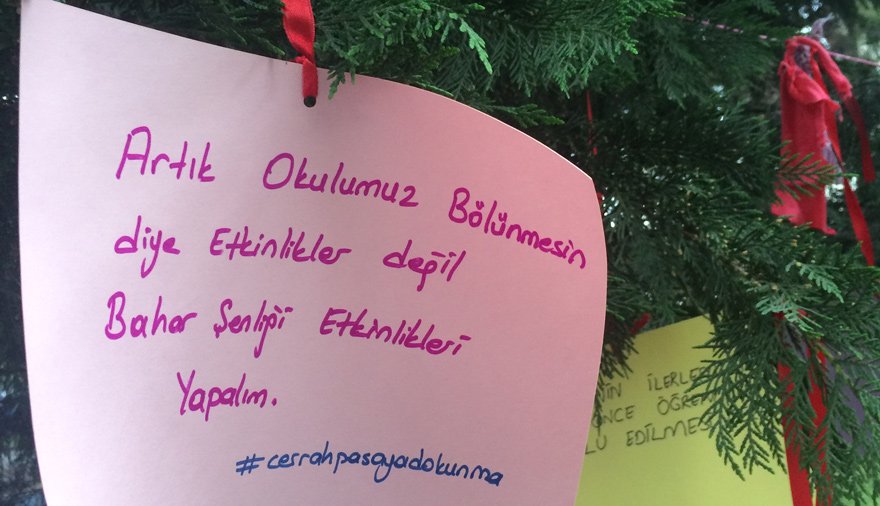 Artık Okulumuz Bölünmesin
diye Etkinlikler değil
Bahar Şenliği Etkinlikleri
Yapalım.
#cerrahpasayadokunma
ÖNCE
EDİLMES